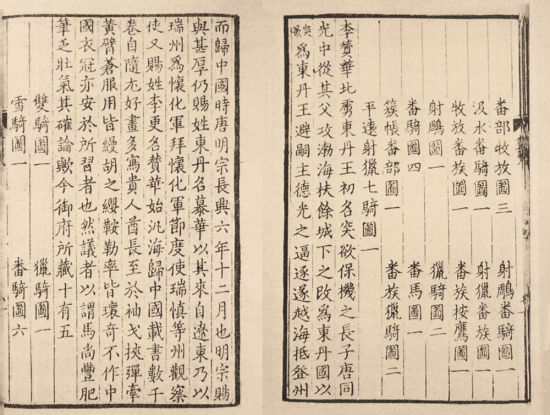 番部牧放圖三 射鵰番騎圖一
汲水番騎圖一 射獵番族圖一
牧放番族圖一 番族按鷹圖一
射鵰圖一 獵騎圖二
番騎圖四 番馬圖一
簇帳番部圖一 番族獵騎圖二
平遠射獵七騎圖一
李贊華北虜東丹王初名突欲保機之長子唐同
光中從其父攻渤海扶餘城下之改爲東丹國以
突欲爲東丹王避嗣主德光之逼遂越海抵登州
而歸中國時唐明宗長興六年十二月也明宗賜
與甚厚仍賜姓東丹名慕華以其來自遼東乃以
瑞州爲懷化軍拜懷化軍節度使瑞慎等州觀察
使又賜姓李更名贊華始汎海歸中國載書數千
卷自隨尤好畫多寫貴人酋長至於袖戈挾彈牽
黃臂蒼服用皆縵胡之纓鞍勒率皆瓌奇不作中
國衣冠亦安於所習者也然議者以謂馬尚豐肥
筆乏壯氣其確論歟今御府所藏十有五
雙騎圖一 獵騎圖一
雪騎圖一 番騎圖六